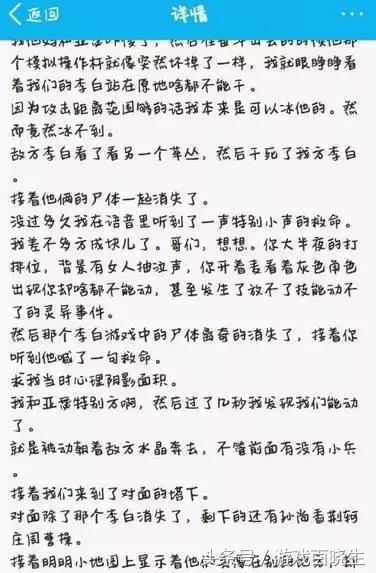 返回
详情
那
个模拟操作杆就像突然坏掉了一样，我就眼睁睁看
着我们的李白站在原地啥都不能干。
因为攻击距离范围够的话我本来是可以冰他的。然
而竟然冰不到。
敌方李白看了看另一个草丛，然后干死了我方李白
。
接着他俩的尸体一起消失了。
没过多久我在语音里听到了一声特别小声的救命。
我差不多方成块儿了。哥们，想想。你大半夜的打
排位，背景有女人抽泣声，你开着麦看着灰色角色
出现你却啥都不能动，甚至发生了放不了技能动不
了的灵异事件。
然后那个李白游戏中的尸体离奇的消失了，接着你
听到他喊了一句救命。
求我当时心理阴影面积。
我和亚瑟特别方啊，然后过了几秒我发现我们能动
了。
就是被动朝着敌方水晶奔去，不管前面有没有小兵
。
接着我们来到了对面的塔下。
对面除了那个李白消失了，剩下的还有孙尚香荆轲
庄周曹操。
接着明明小地图上显示着他
头条号/游戏百晓生